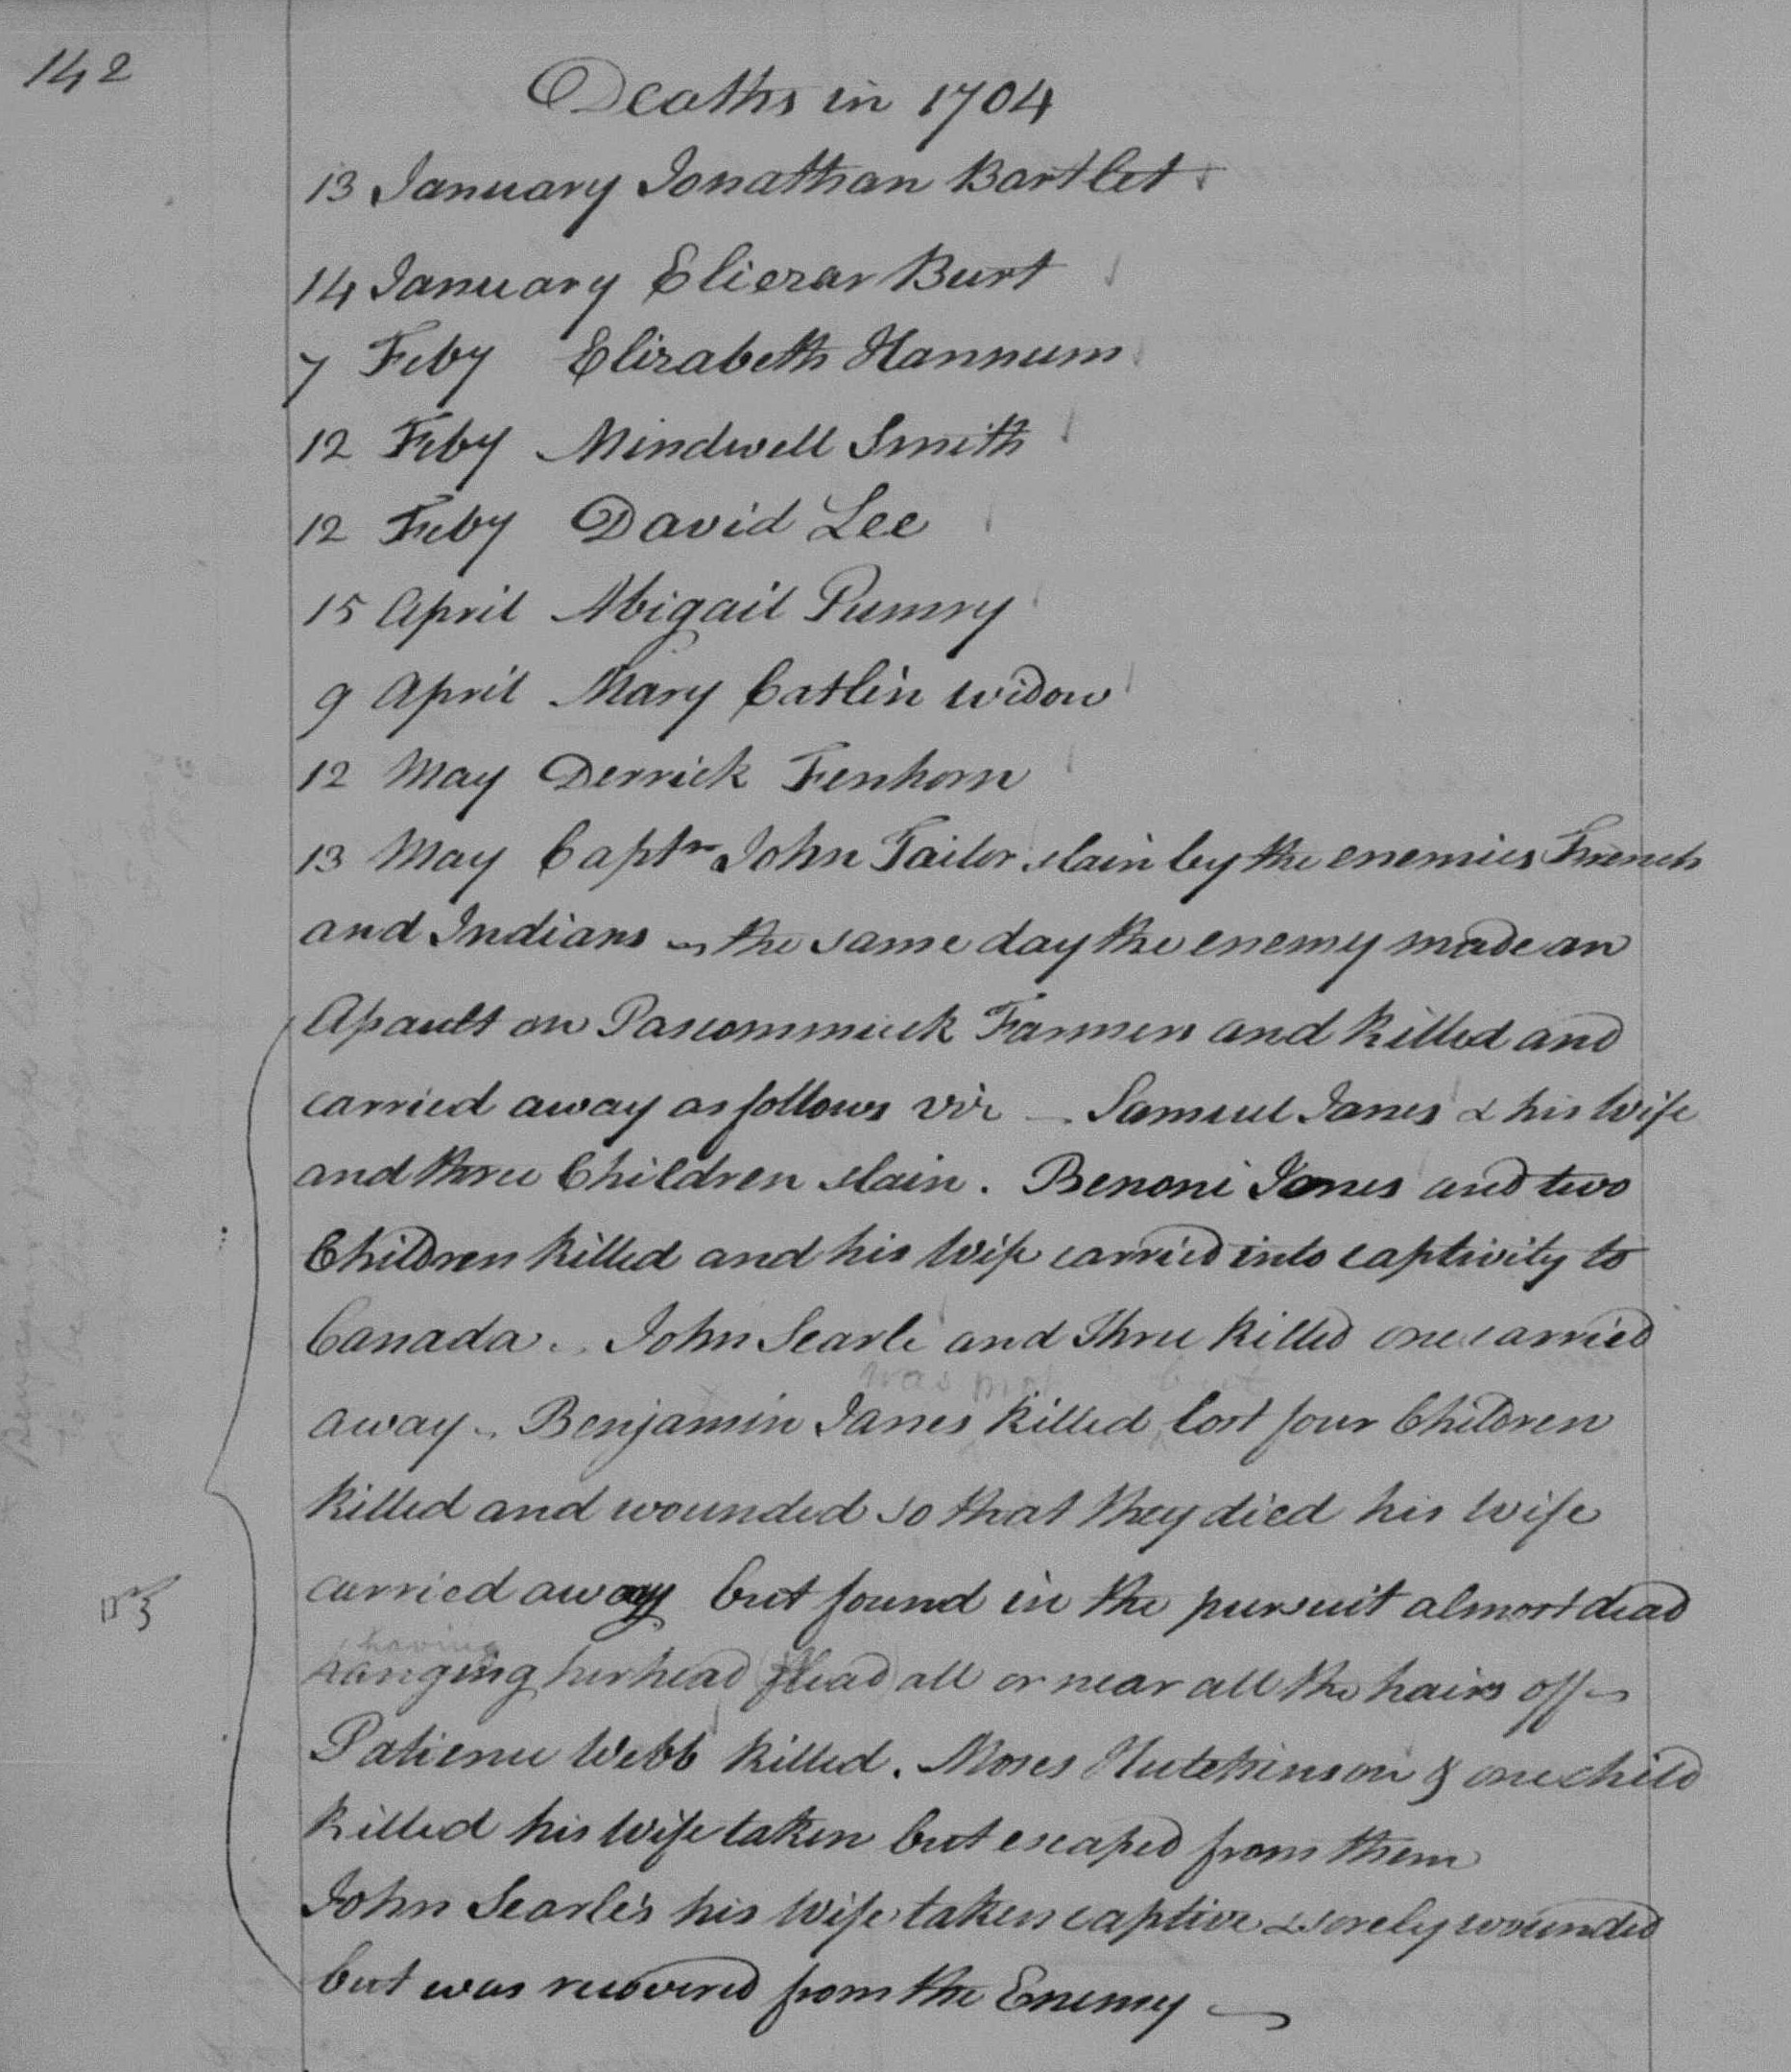 142
Deaths in 1704
13 January Jonathan Bartlet
14 January Eliezar Burt
7 Feby Elizabeth Hannum
12 Feby Mindwell Smith
12 Feby David Lee
15 April Abigail Pumry
9 April Mary Catlin widow
12 May Derrick Fenhorn
13 May Captn John Tailor slain by the enemies French
and Indians the same day the enemy made an
Assault on Pascommuck Farmers and killed and
carried away as follows viz — Samuel Janes & his Wife
and three Children slain. Benoni Jones and two
Children killed and his Wife carried into captivity to
Canada. John Searle and Three killed one carried
was not but
away. Benjamin Janes killed lost four Children
killed and wounded so that they died his Wife
carried away but found in the pursuit almost dead
having
hanging her head flead all or near all the hairs off
Patience Webb killed. Moses Hutchinson & one child
killed his Wife taken but escaped from them
John Searle's his Wife taken captive & sorely wounded
but was recovered from the Enemy —